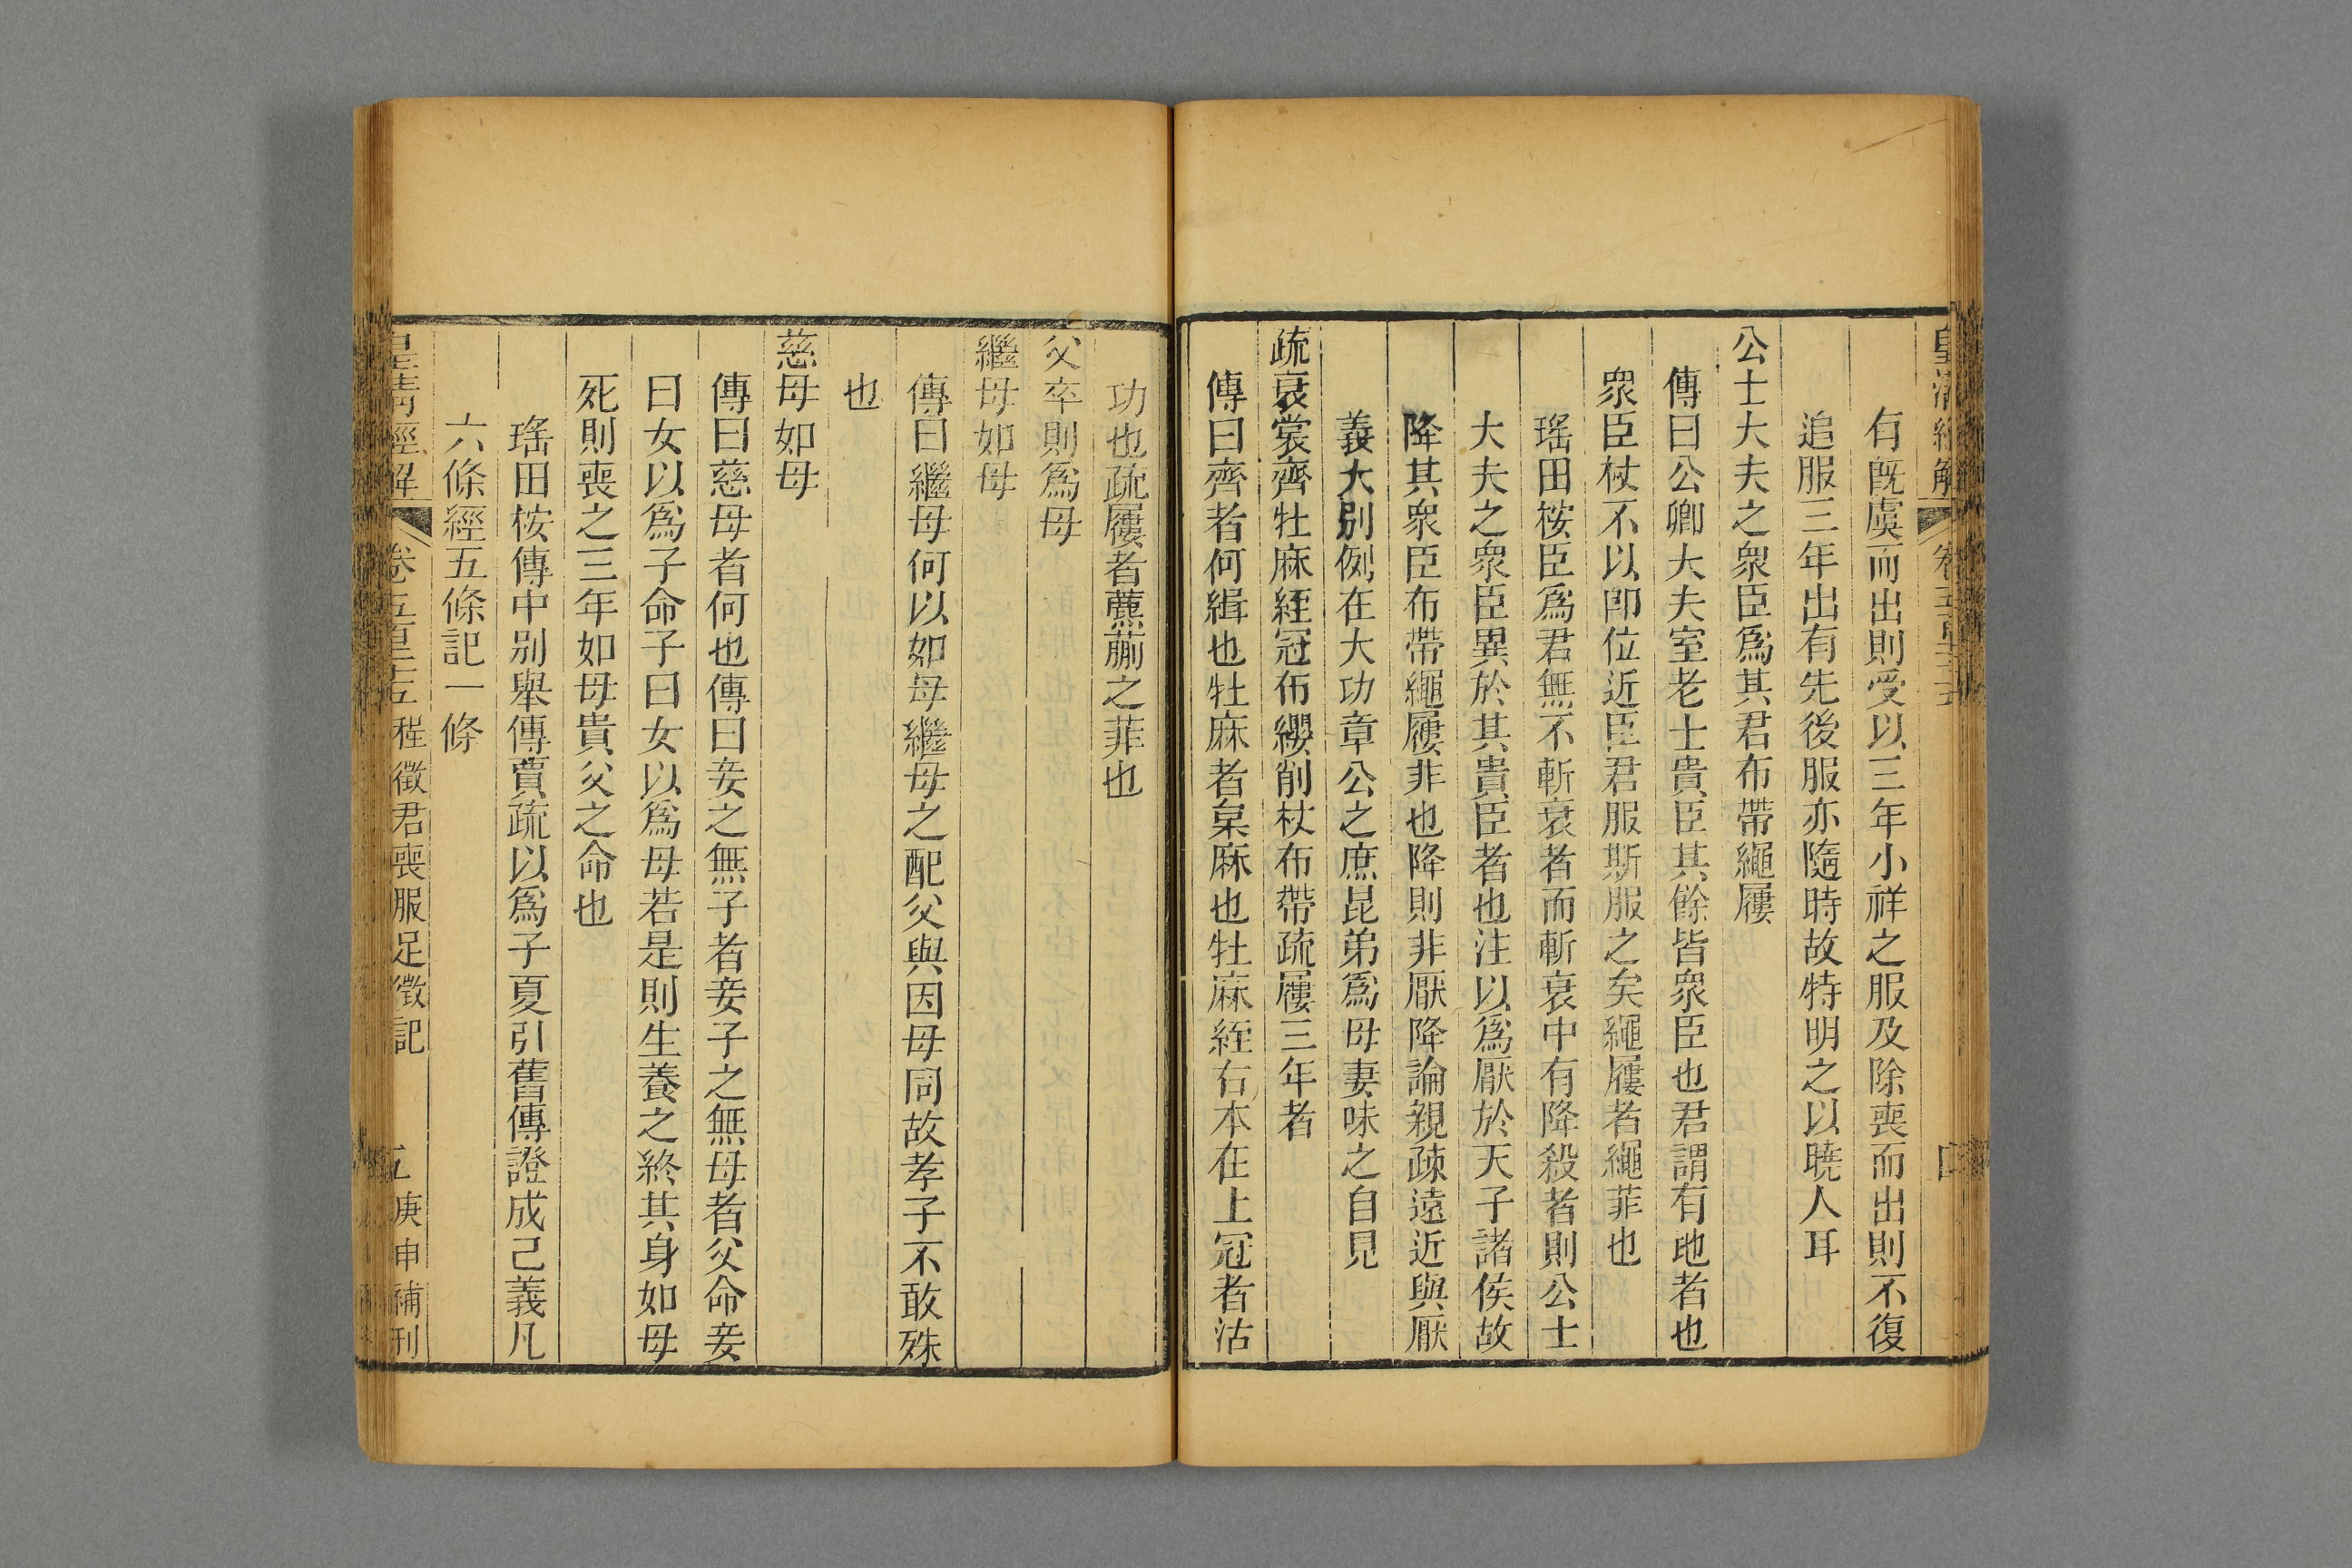 皇清經解 卷五百二十五 四
有旣虞而出則受以三年小祥之服及除喪而出則不復
追服三年出有先後服亦隨時故特明之以曉人耳
公士大夫之衆臣爲其君布帶繩屨
傳曰公卿大夫室老士貴臣其餘皆衆臣也君謂有地者也
衆臣杖不以卽位近臣君服斯服之矣繩屨者繩菲也
瑤田桉臣爲君無不斬衰者而斬衰中有降殺者則公士
大夫之衆臣異於其貴臣者也注以爲厭於天子諸侯故
降其衆臣布帶繩屨非也降則非厭降論親疎遠近與厭
義大別例在大功章公之庶昆弟爲母妻味之自見
疏衰裳齊牡麻絰冠布纓削杖布帶疏屨三年者
傳曰齊者何緝也牡麻者枲麻也牡麻絰右本在上冠者沽
功也疏屨者藨蒯之菲也
父卒則爲母
繼母如母
傳曰繼母何以如母繼母之配父與因母同故孝子不敢殊
也
慈母如母
傳曰慈母者何也傳曰妾之無子者妾子之無母者父命妾
曰女以爲子命子曰女以爲母若是則生養之終其身如母
死則喪之三年如母貴父之命也
瑤田桉傳中别舉傳賈疏以爲子夏引舊傳證成己義凡
六條經五條記一條
皇清經解 卷五百二十五 程徵君喪服足徵記 五 庚申補刊